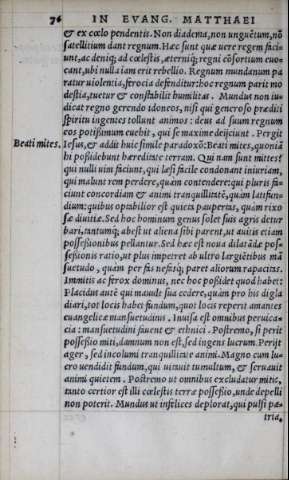 76 IN EVANG. MATTHAEI
& ex cœlo pendentis. Non diadema, non unguẽtum, nõ
satellitium dant regnum. Hæc sunt quæ uere regem faciunt,
ac deniq; ad cœlestis, æterniq; regni cõsortium euocant,
ubi nulla iam erit rebellio. Regnum mundanum paratur
uiolentia, ferocia defenditur: hoc regnum parit modestia,
tuetur & constabilit humilitas. Mundus non iudicat
regno gerendo idoneos, nisi qui generoso præditi
spiritu ingentes tollunt animos: deus ad suum regnum
eos potissimum euehit, qui se maxime deijciunt. Pergit
Beati mites. Iesus, & addit huic simile paradoxõ: Beati mites, quoniã
hi possidebunt hæreditate terram. Qui nam sunt mittes?
qui nulli uim faciunt, qui læsi facile condonant iniuriam,
qui malunt rem perdere, quàm contendere: qui pluris faciunt
concordiam & animi tranquillitatẽ, quàm latifundium:
quibus optabilior est quieta paupertas, quàm rixosæ
diuitiæ. Sed hoc hominum genus solet suis agris deturbari,
tantumq; abest ut aliena sibi parent, ut auitis etiam
possessionibus pellantur. Sed hæc est noua dilatãdæ possessionis
ratio, ut plus impetret ab ultro largiẽtibus mãsuetudo,
quàm per fas nefasq; paret aliorum rapacitas.
Immitis ac ferox dominus, nec hoc possidet quod habet:
Placidus autẽ qui mauult sua cedere, quàm pro his digladiari,
tot locis habet fundum, quot locis reperit amantes
euangelicæ mansuetudinis. Inuisa est omnibus peruicacia:
mansuetudini fauent & ethnici. Postremo, si perit
possessio miti, damnum non est, sed ingens lucrum. Perijt
ager, sed incolumi tranquillitate animi. Magno cum lucro
uendidit fundum, qui uitauit tumultum, & seruauit
animi quietem. Postremo ut omnibus excludatur mitis,
tanto certior est illi cœlestis terræ possessio, unde depelli
non poterit. Mundus ut infelices deplorat, qui pulsi patria,